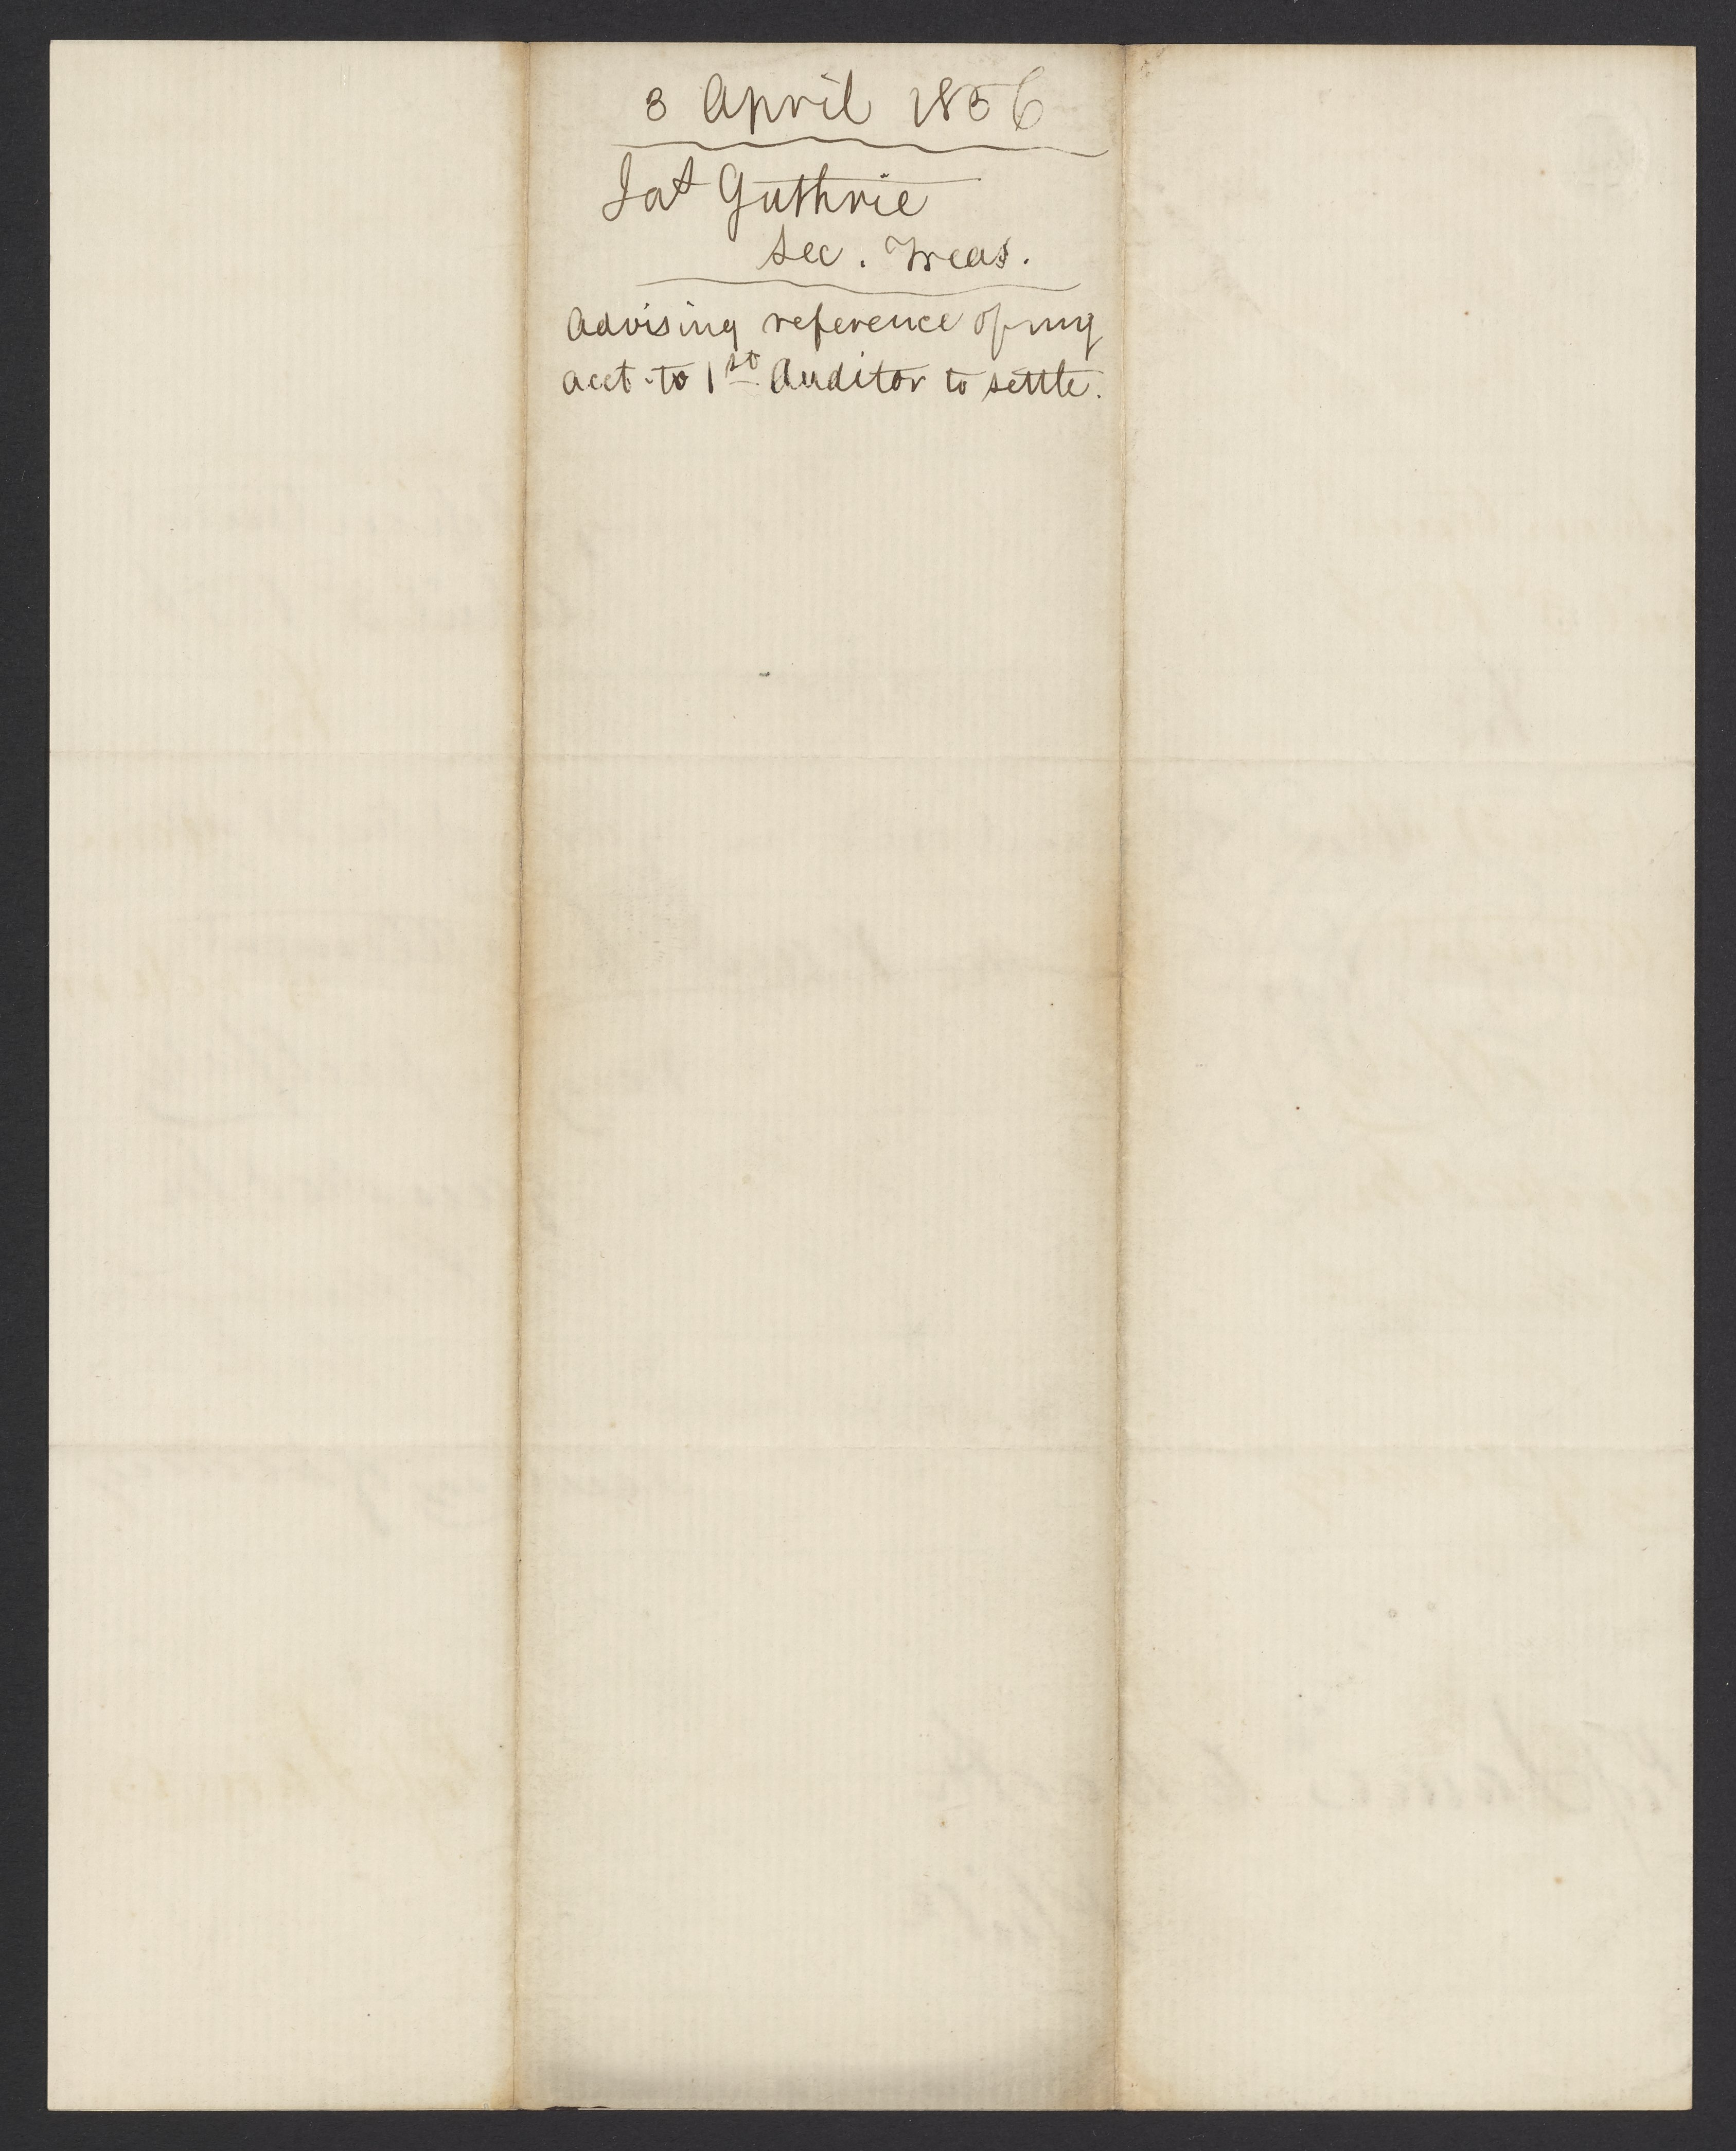 3 April 1856
Jas Guthrie
Sec. Treas.
Advising reference of my
acct. to 1st Auditor to settle.